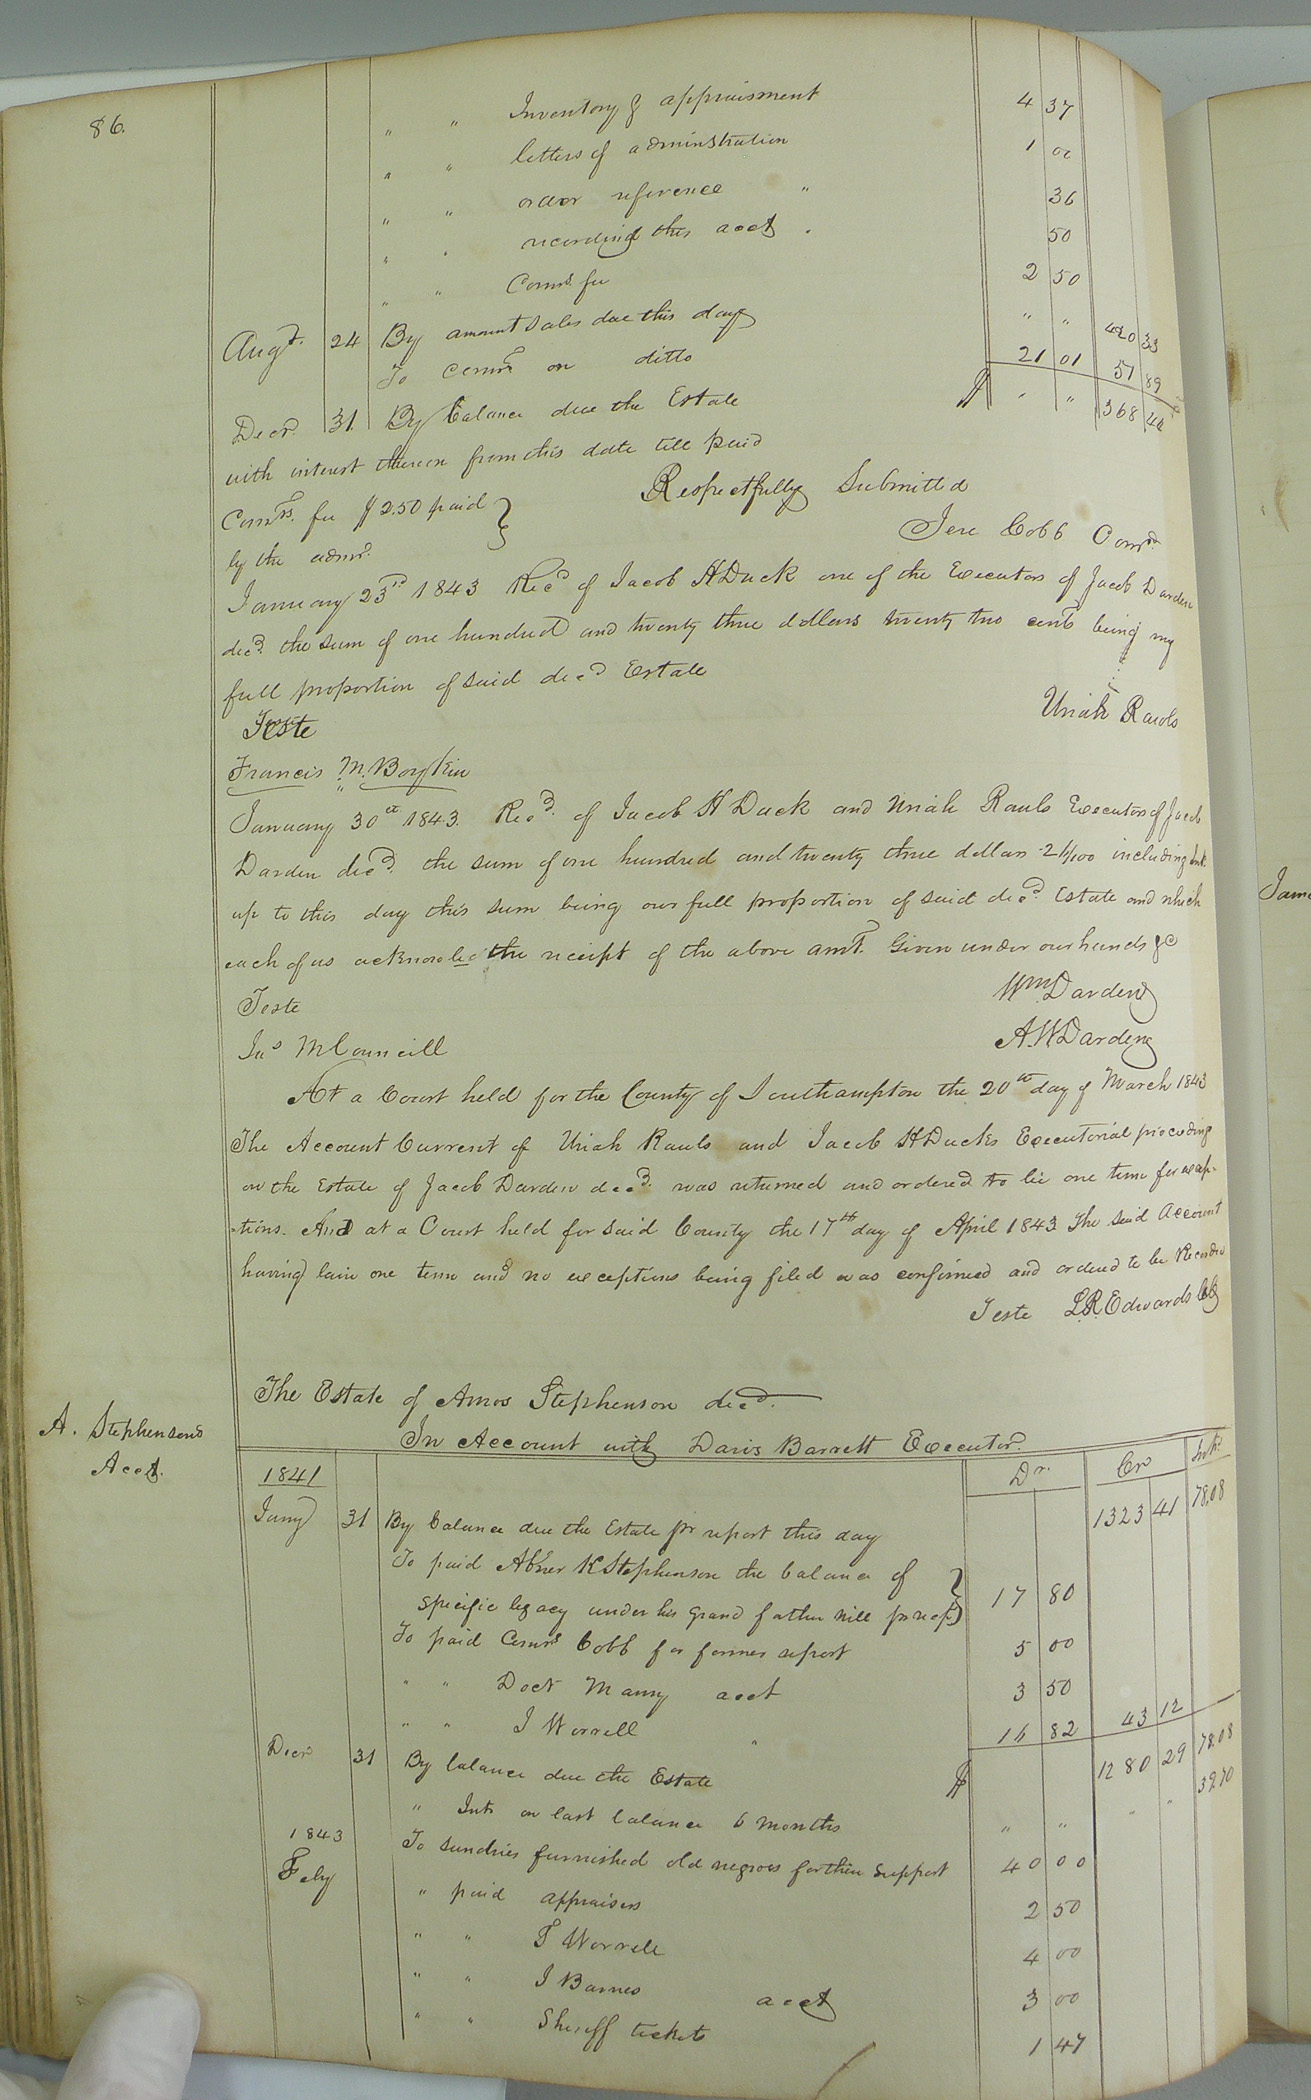 86.
" " Inventory & appraisment 4 37
" " letters of adminstration 1 00
" " order reference " 36
" " recording this acct . 50
" " Comrs. fee 2 50
Augt. 24 By amount sales due this day " " 420 33
To Comrs on ditto 21 01 51 89
Decr. 31 By balance due the Estate $ " " 368 44
with interest thereon from this date till paid
Respectfully Submitted
Comrs. fee $2.50 paid }
by the admr.
Jere Cobb Comr.
January 23rd 1843 Recd of Jacob H Duck one of the Executors of Jacob Darden
decd. the sum of one hundred and twenty three dollars twenty two cents being my
full proportion of said decd Estate
Uriah Rawls
Teste
Francis M. Boykin
January 30th 1843. Recd. of Jacob H Duck and Uriah Rawls Executors of Jacob
Darden decd. the sum of one hundred and twenty three dollars /100 including Int.
up to this day this sum being our full proportion of said decd. Estate and which
each of us the receipt of the above amt. Given under our hands &c
Wm Darden
Teste
A.W Darden
Jas McCouncill
At a Court held for the County of Southampton the 20th day of March 1843
The Account Current of Uriah Rawls and Jacob H Ducks Executorial proceding
on the Estate of Jacob Darden decd. was returned and ordered to lie one term for excep-
-tions. And at a Court held for said County the 17th day of April 1843 The said Account
having lain one term and no exceptions being filed was confirmed and ordered to be Recorded
Teste L.R. Edwards Clk
The Estate of Amos Stephenson decd.
A. Stephensons
Acct.
In Account with Davis Barrett Executor.
1841 Dr. Cr Int.
Jany 31 By balance due the Estate pr report this day 1323 41 78.08
To paid Abner K Stephenson the balance of }
specific legacy under his grand father will pr rect } 17 80
To paid Comrs Cobb for former report 5 00
" " Doct Manry acct 3 50
" " J Worrell " 16 82 43 12
Decr 31 By balance due the Estate $ 1280 29 78.08
" Int on last balance 6 months " " " " 39.70
1843
Feby To sundries furnished old negroes for their support 40 00
" paid appraisers 2 50
" " T Worrell 4 00
" " J Barnes acct 3 00
" " Sheriff tickets 1 47